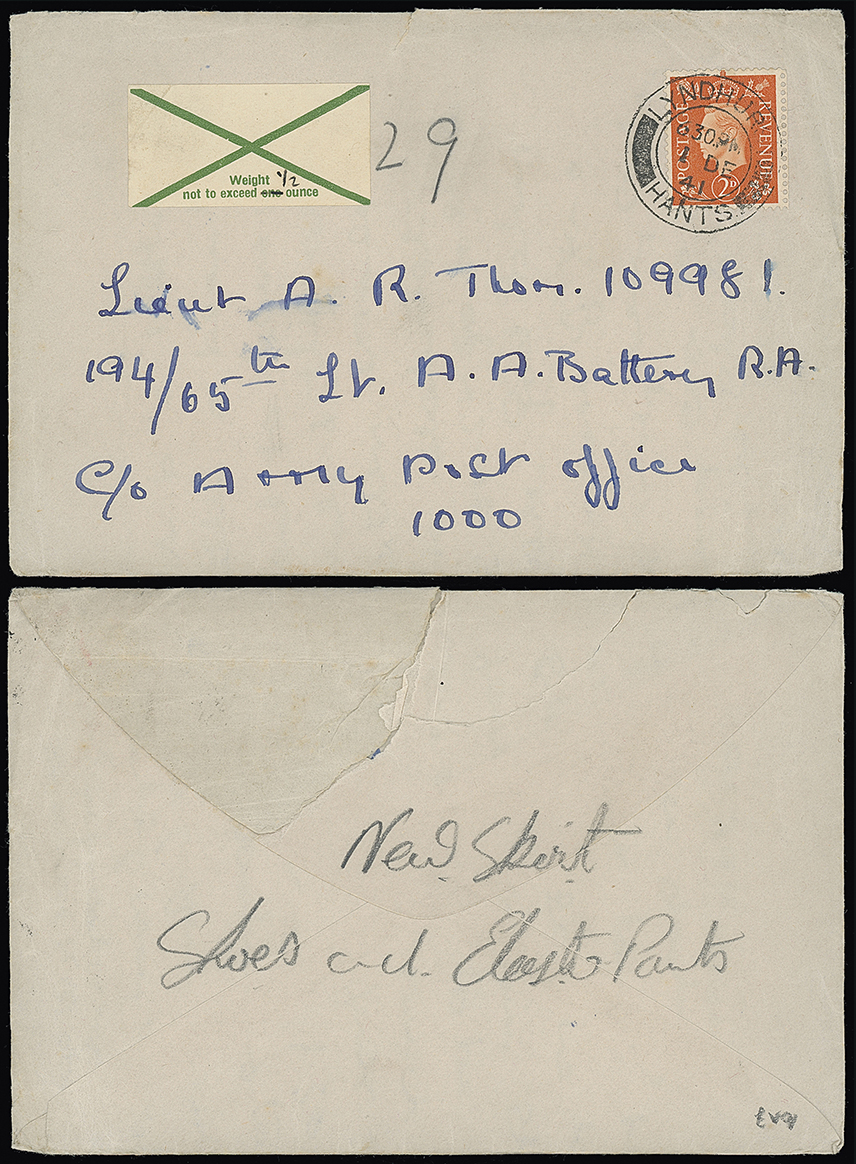 Weight 1/2
not to exceed one ounce
29
POSTAGE REVENUE
2D
LYNDHUR
6 30 PM
2 DE
41
HANTS.
Lieut A. R. Thom. 109981.
194/65th Lt. A. A. Battery R.A.
C/o Army Post office
1000
New Skirt
Shoes and Elastic Pants